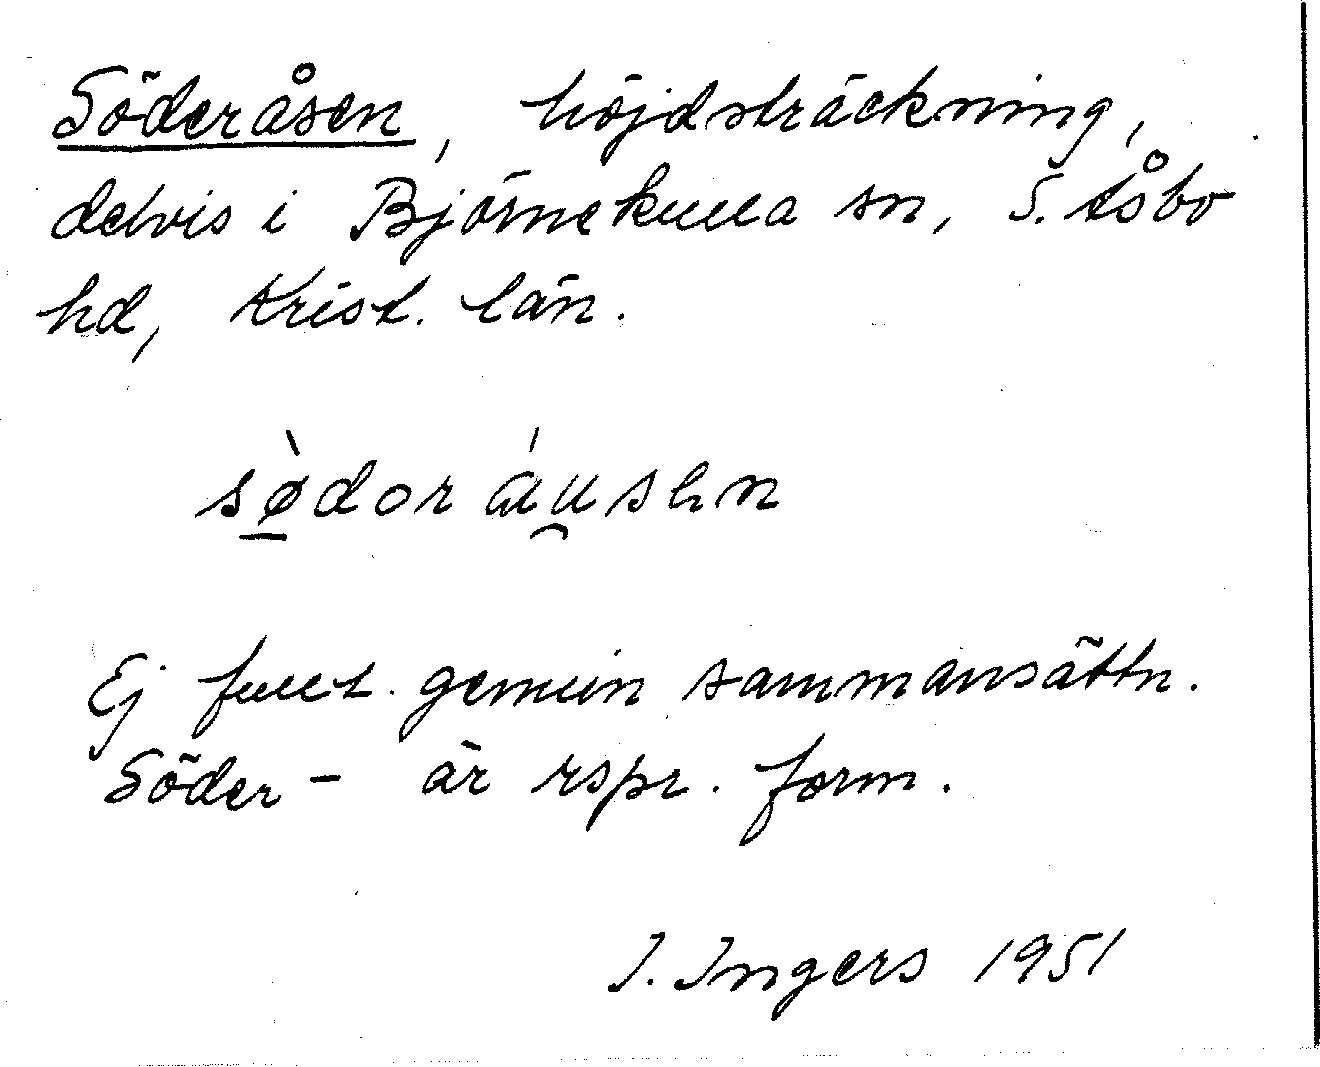 Söderåsen, höjdsträckning,
delvis i Björnekulla sn, S. Åsbo
hd, Krist. län.
sø̀dor áusen
Ej fullt gemuin sammansättn.
Söder- är rspr. form.
I. Ingers 1951